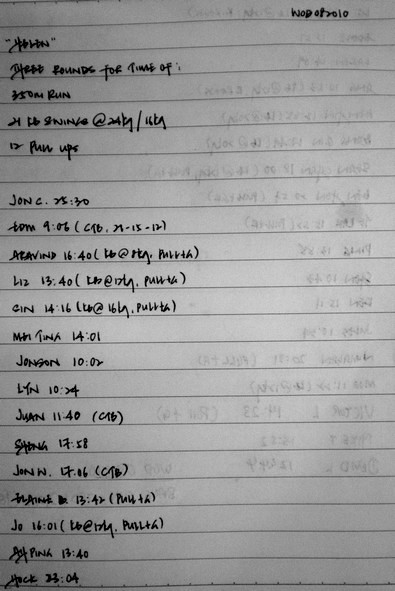 WOD082010
"HELEN"
THREE ROUNDS FOR TIME OF:
350M RUN
21 KB SWINGS @24kg/16kg
12 PULL UPS
JON C. 25:30
EDM 9:06 (CTB, 21-15-12)
ARAVIND 16:40 (KB@8kg, PULLTA)
LIZ 13:40 (KB@12kg, PULLTA)
GIN 14:16 (KB@16kg, PULLTA)
MEI TING 14:01
JONSON 10:02
LYN 10:24
JUAN 11:40 (CTB)
SHENG 17:58
JON W. 17:06 (CTB)
ELAINE 13:42 (PULLTA)
JO 16:01 (KB@12kg, PULLTA)
AH PING 13:40
HOCK 23:04